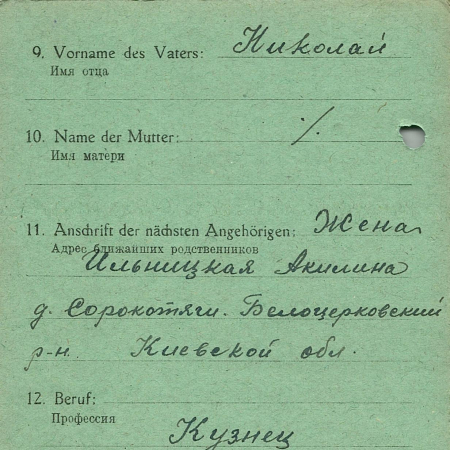 9. Vorname des Vaters: Николай
Имя отца
10. Name der Mutter: ⁒
Имя матери
11. Anschrift der nächsten Angehörigen: Жена
Адрес ближайших родственников
Ильницкая Акилина
д. Сорокотяги. Белоцерковский
р-н. Киевской обл.
12. Beruf:
Профессия
Кузнец